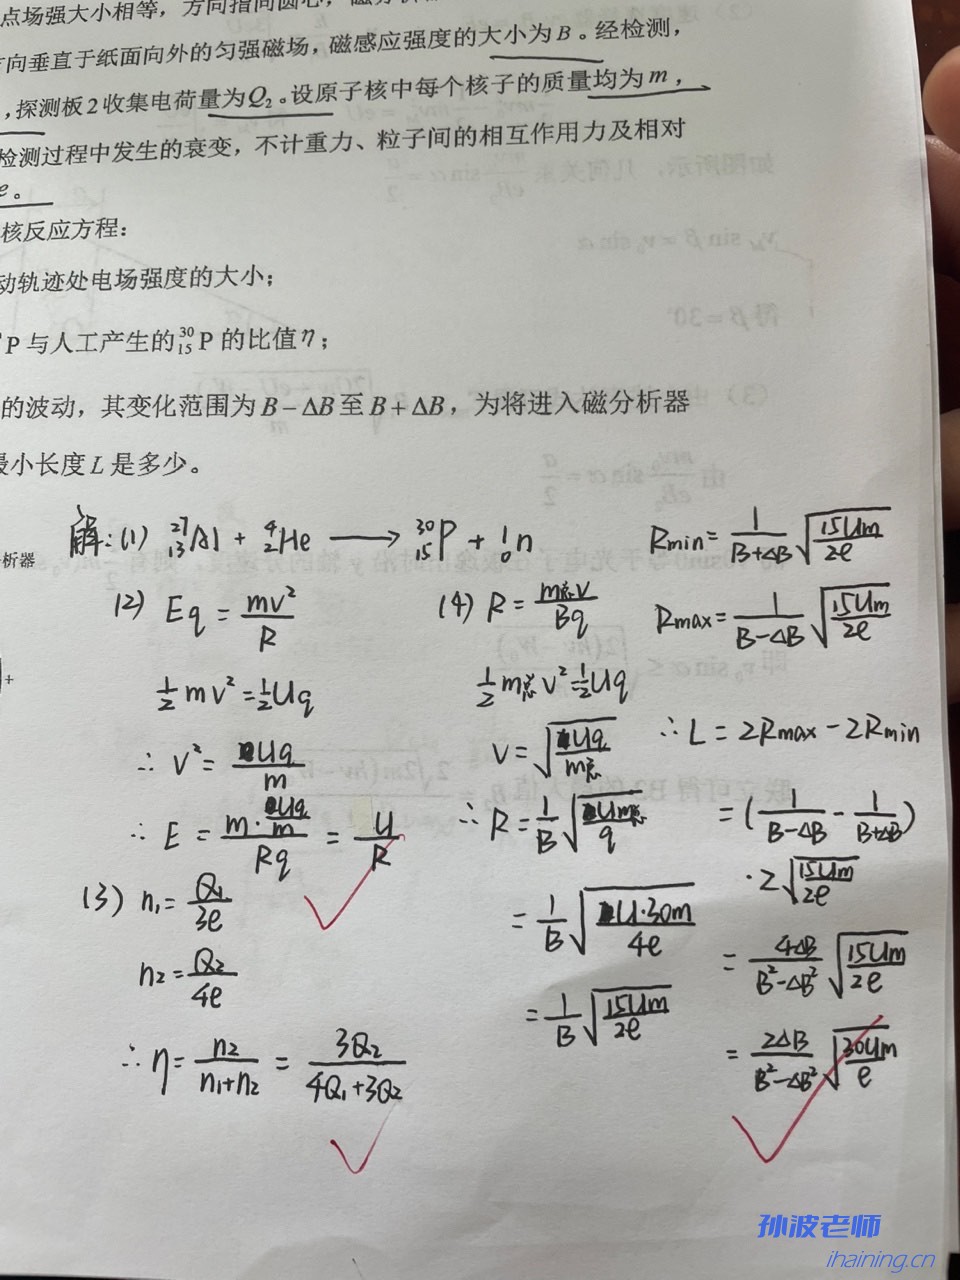 点场强大小相等，方向指向圆心，
方向垂直于纸面向外的匀强磁场，磁感应强度的大小为B。经检测，
，探测板2收集电荷量为Q₂。设原子核中每个核子的质量均为m，
检测过程中发生的衰变，不计重力、粒子间的相互作用力及相对
e。
核反应方程：
动轨迹处电场强度的大小；
P与人工产生的³⁰₁₅P的比值η；
的波动，其变化范围为B－ΔB至B＋ΔB，为将进入磁分析器
最小长度L是多少。
析器
+
解：(1) ²⁷₁₃Al + ⁴₂He ⟶ ³⁰₁₅P + ¹₀n
(2) Eq = mv²/R
½mv² = ½Uq
∴ v² = Uq/m
∴ E = (m·Uq/m)/(Rq) = U/R
(3) n₁ = Q₁/3e
n₂ = Q₂/4e
∴ η = n₂/(n₁+n₂) = 3Q₂/(4Q₁+3Q₂)
(4) R = m总v/Bq
½m总v² = ½Uq
v = √(Uq/m总)
∴ R = 1/B √(Um总/q)
= 1/B √(U·30m/4e)
= 1/B √(15Um/2e)
Rmin = 1/(B+ΔB) √(15Um/2e)
Rmax = 1/(B-ΔB) √(15Um/2e)
∴ L = 2Rmax - 2Rmin
= (1/(B-ΔB) - 1/(B+ΔB))
·2√(15Um/2e)
= 4ΔB/(B²-ΔB²) √(15Um/2e)
= 2ΔB/(B²-ΔB²) √(30Um/e)
孙波老师
ihaining.cn